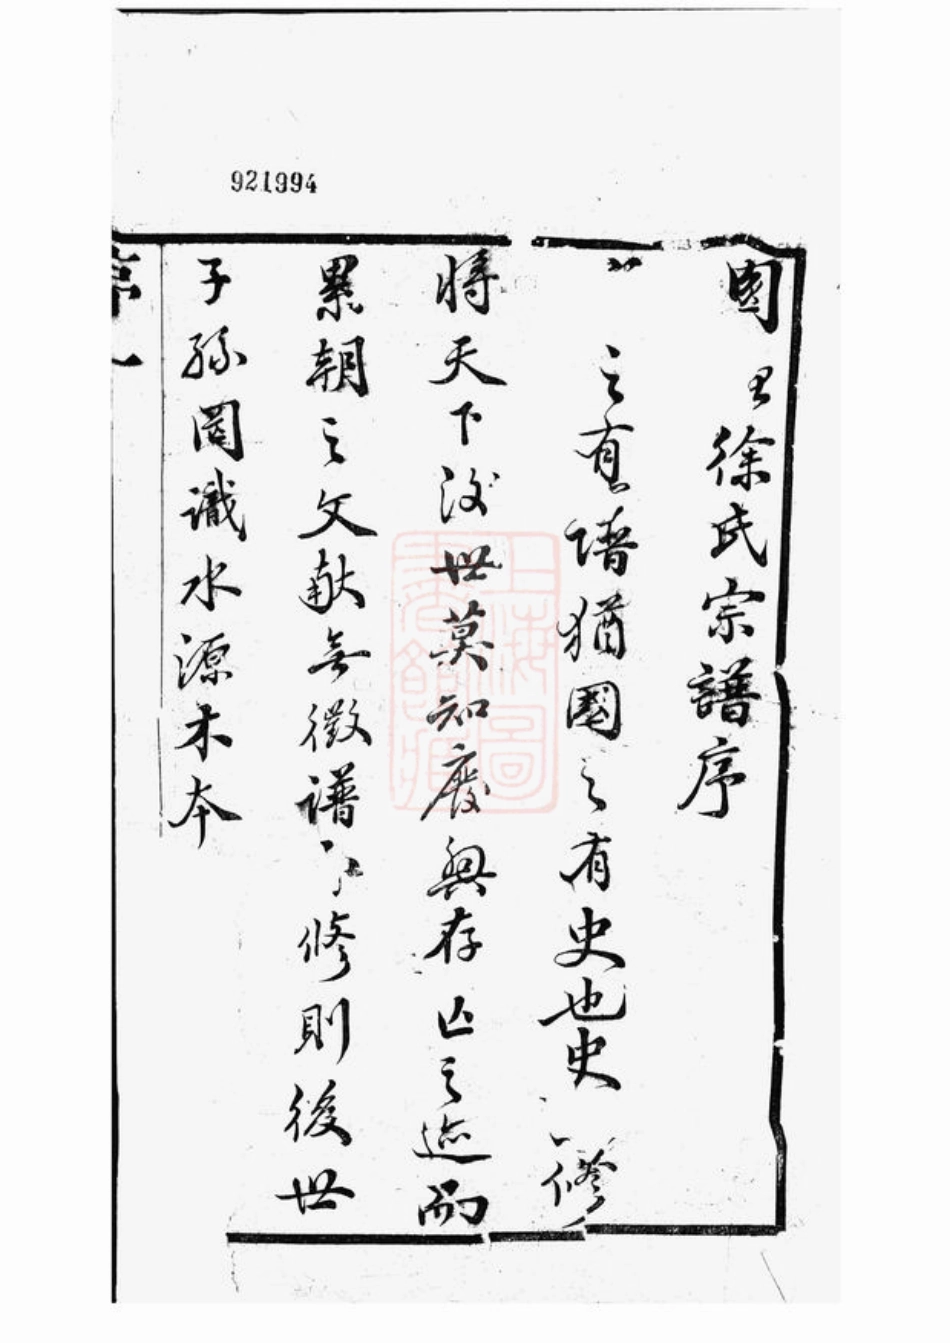 921994
徐氏宗譜序
之有譜猶國之有史也史 修
將天下後世莫知廢興存亡之迹而
累朝之文献無徵譜 修則後世
子孫罔識水源木本
上海圖書館藏